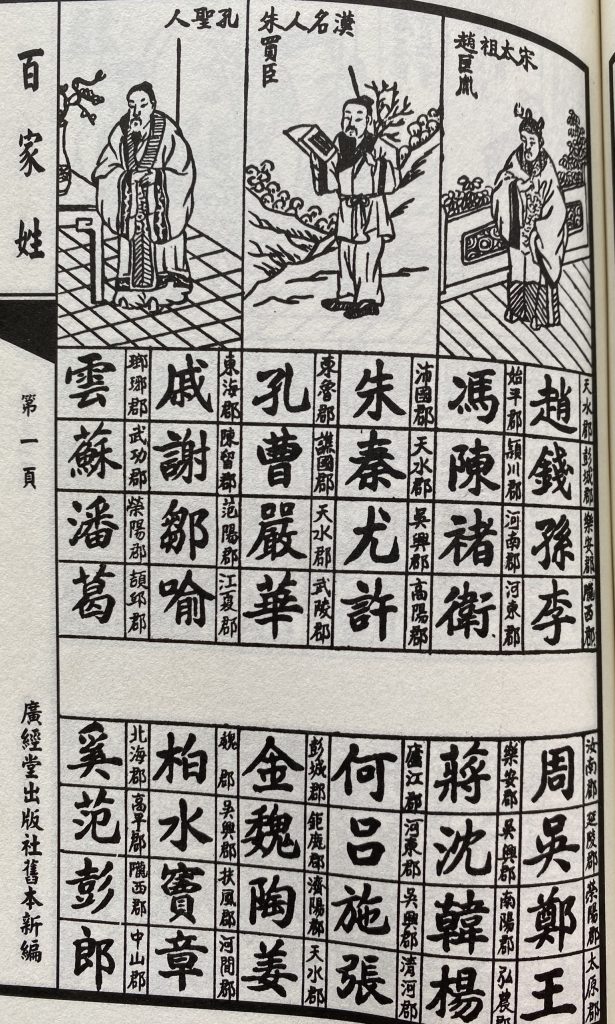 百家姓
第一頁
廣經堂出版社舊本新編
宋太祖趙匡胤
漢名人朱買臣
孔聖人
天水郡 彭城郡 樂安郡 隴西郡
趙 錢 孫 李
始平郡 頴川郡 河南郡 河東郡
馮 陳 褚 衛
沛國郡 天水郡 吳興郡 高陽郡
朱 秦 尤 許
東魯郡 譙國郡 天水郡 武陵郡
孔 曹 嚴 華
東海郡 陳留郡 范陽郡 江夏郡
戚 謝 鄒 喻
瑯琊郡 武功郡 榮陽郡 頡邱郡
雲 蘇 潘 葛
汝南郡 延陵郡 榮陽郡 太原郡
周 吳 鄭 王
樂安郡 吳興郡 南陽郡 弘農郡
蔣 沈 韓 楊
廬江郡 河東郡 吳興郡 清河郡
何 呂 施 張
彭城郡 鉅鹿郡 濟陽郡 天水郡
金 魏 陶 姜
魏郡 吳興郡 扶風郡 河間郡
柏 水 竇 章
北海郡 高平郡 隴西郡 中山郡
奚 范 彭 郎